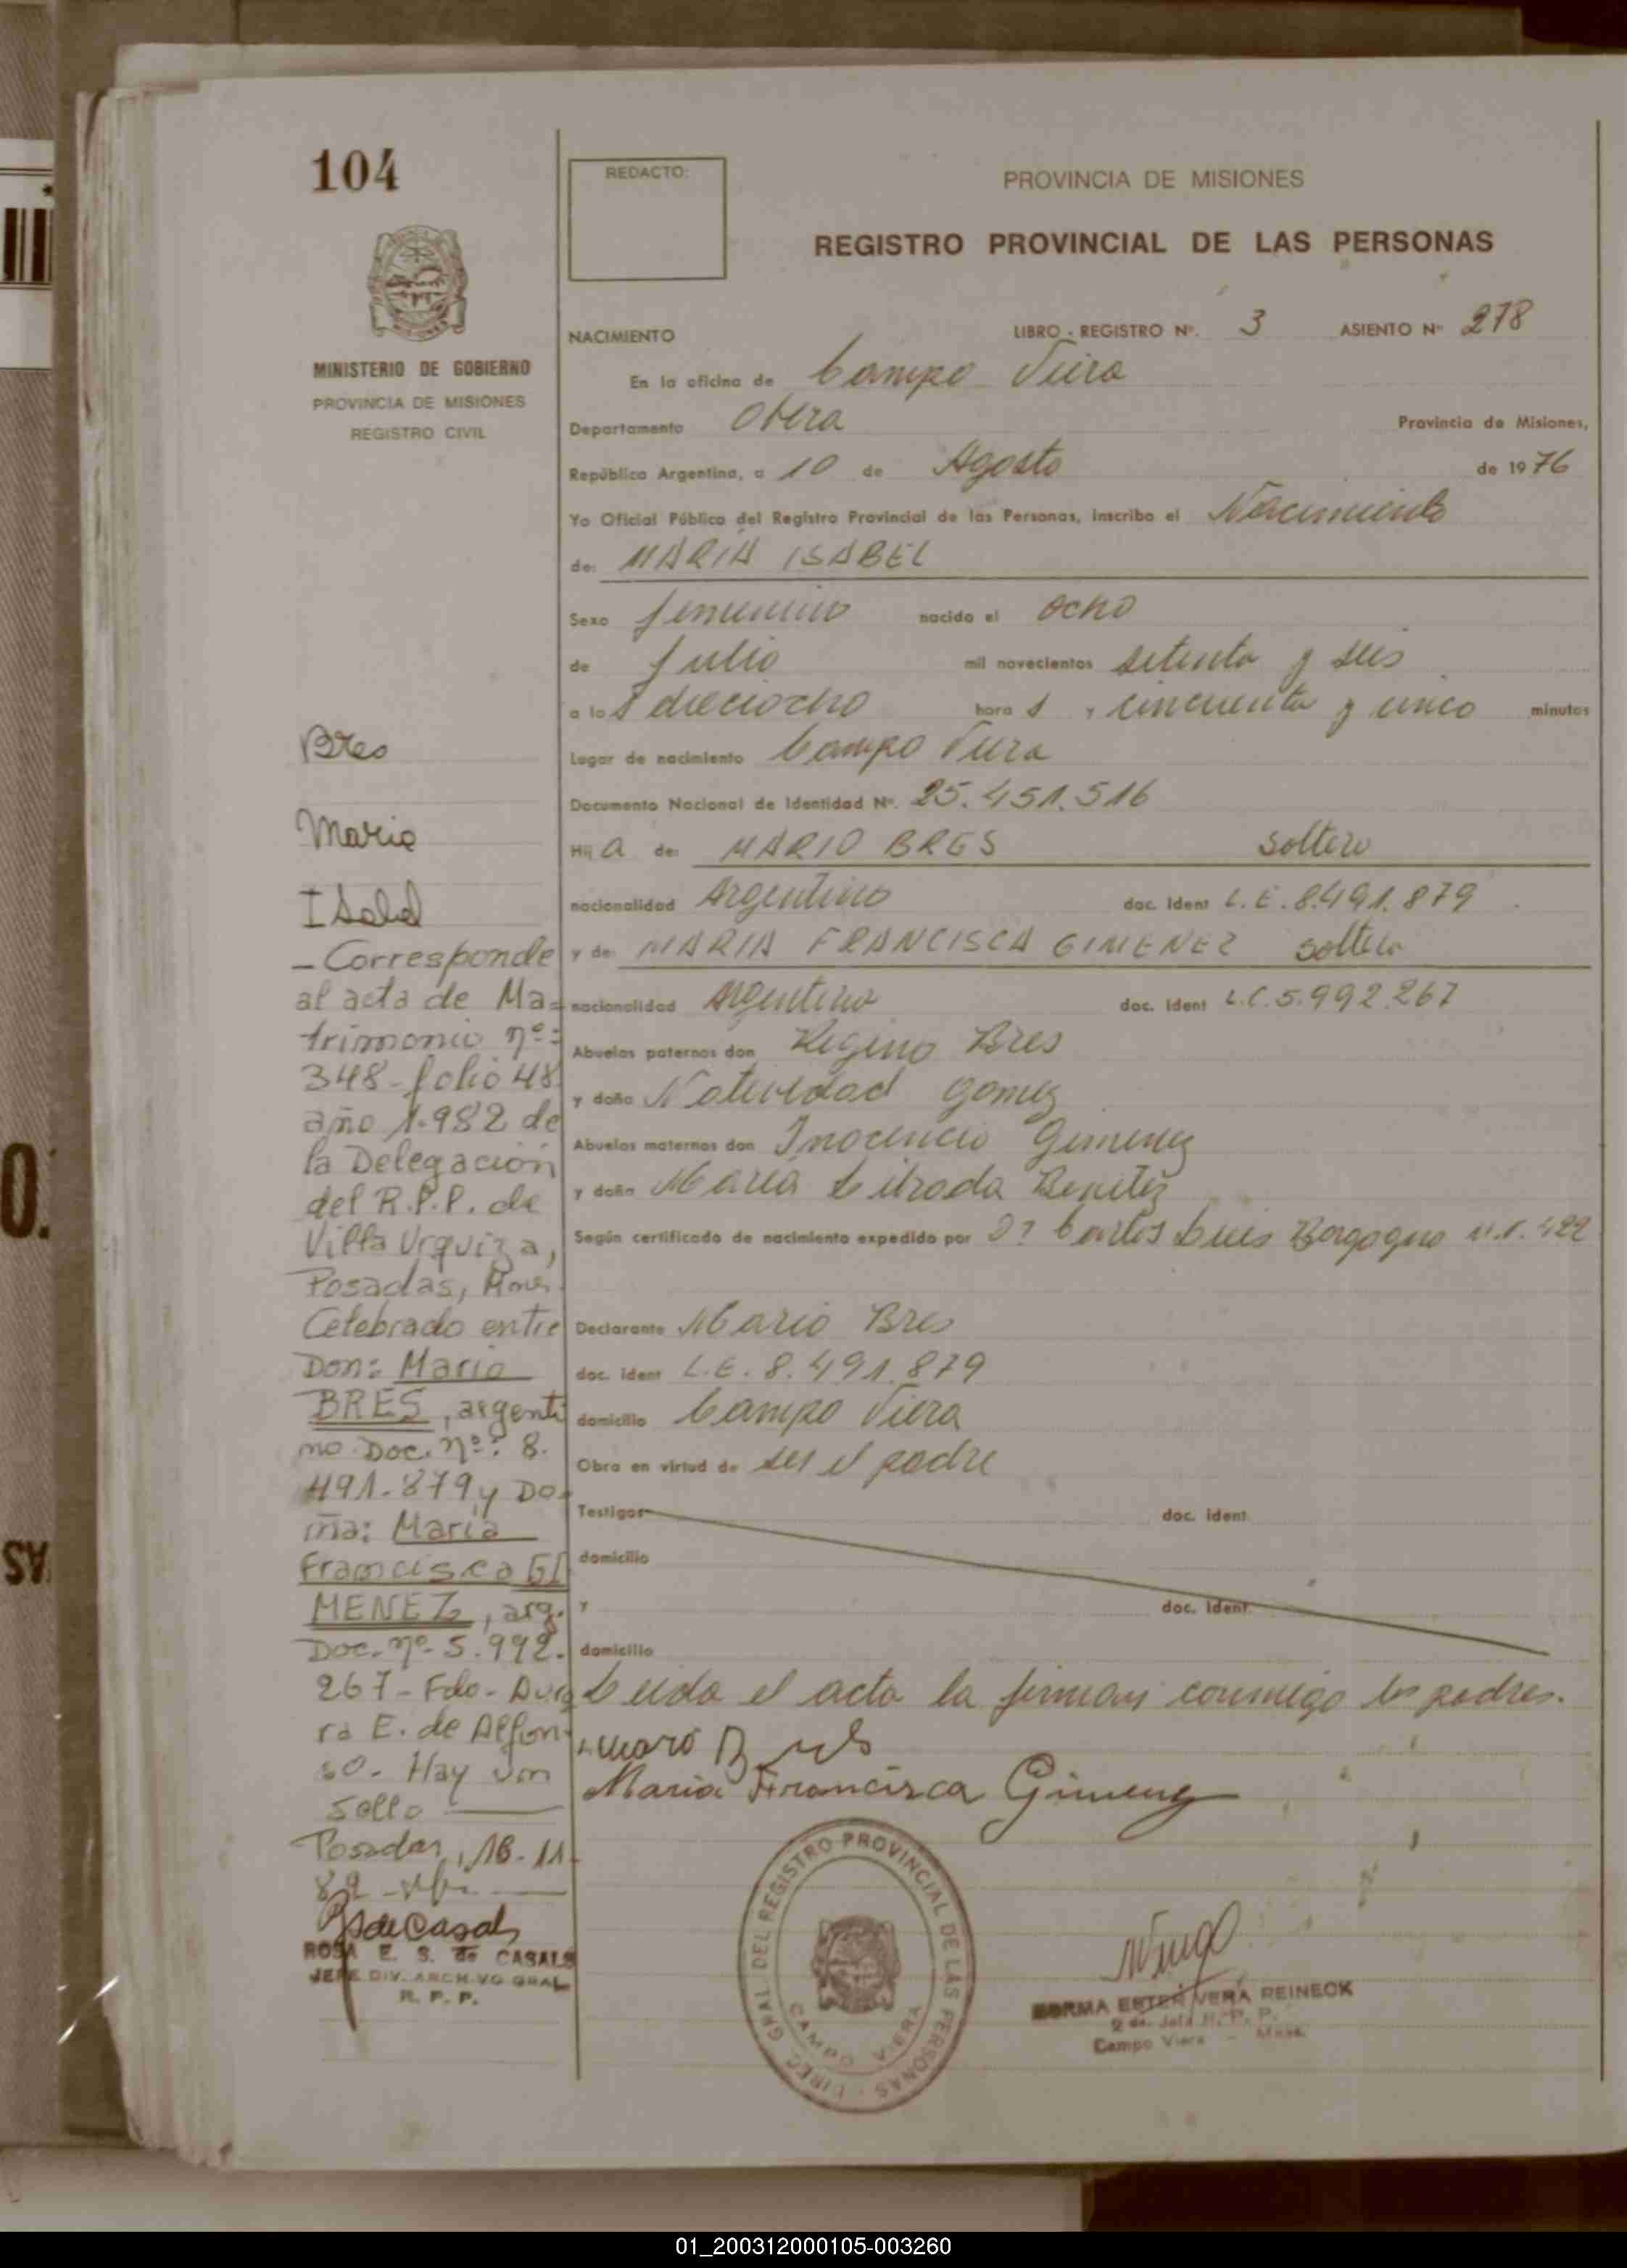 104
MINISTERIO DE GOBIERNO
PROVINCIA DE MISIONES
REGISTRO CIVIL
REDACTO:
PROVINCIA DE MISIONES
REGISTRO PROVINCIAL DE LAS PERSONAS
NACIMIENTO LIBRO - REGISTRO Nº. 3 ASIENTO Nº 278
En la oficina de Campo Viera
Departamento Obera Provincia de Misiones,
República Argentina, a 10 de Agosto de 1976
Yo Oficial Público del Registro Provincial de las Personas, inscribo el Nacimiento
de: MARIA ISABEL
Sexo femenino nacido el ocho
de Julio mil novecientos setenta y seis
a las dieciocho horas y cincuenta y cinco minutos
Lugar de nacimiento Campo Viera
Documento Nacional de Identidad Nº. 25.451.516
Hija de: MARIO BRES soltero
nacionalidad Argentino doc. Ident L.E. 8.491.879
y de MARIA FRANCISCA GIMENEZ soltera
nacionalidad Argentina doc. Ident L.C. 5.992.267
Abuelos paternos don Regino Bres
y doña Natividad Gomez
Abuelos maternos don Inocencio Gimenez
y doña Maria Benitez
Según certificado de nacimiento expedido por Dr Carlos Luis Borgogno
Declarante Mario Bres
doc. Ident L.E. 8.491.879
domicilio Campo Viera
Obra en virtud de ser el padre
Testigos doc. ident.
domicilio
y doc. ident.
domicilio
Leida el acta la firman conmigo los padres.
Maria Francisca Gimenez
Bres
Maria
Isabel
- Corresponde
al acta de Ma=
trimonio nº:
348-folio 48
año 1.982 de
la Delegación
del R.P.P. de
Villa Urquiza,
Posadas, Mnes.
Celebrado entre
Don: Mario
BRES, argenti
no Doc. nº: 8.
491.879 y Do-
ña: María
Francisca GI
MENEZ, arg.
Doc. nº 5.992.
267- Fdo-
ra E. de Alfon-
so. Hay un
sello
Posadas, 16-11-
82
ROSA E. S. de CASALS
JEFE DIV. ARCHIVO GRAL
R. P. P.
DIREC. GRAL DEL REGISTRO PROVINCIAL DE LAS PERSONAS
CAMPO VIERA
NORMA ESTER VERA REINECK
Campo Viera - Mnes.
01_200312000105-003260